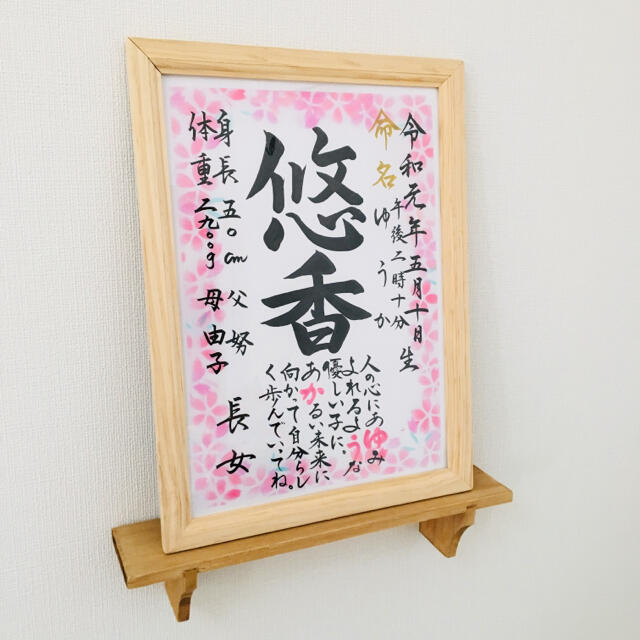 令和元年五月十日生
午後二時十分
命名
ゆうか
悠香
人の心にあゆみ
よれるような
優しい子に。
あかるい未来に
向かって自分らし
く歩んでいてね。
身長五〇cm 父 努
体重二九〇〇g 母 由子
長女